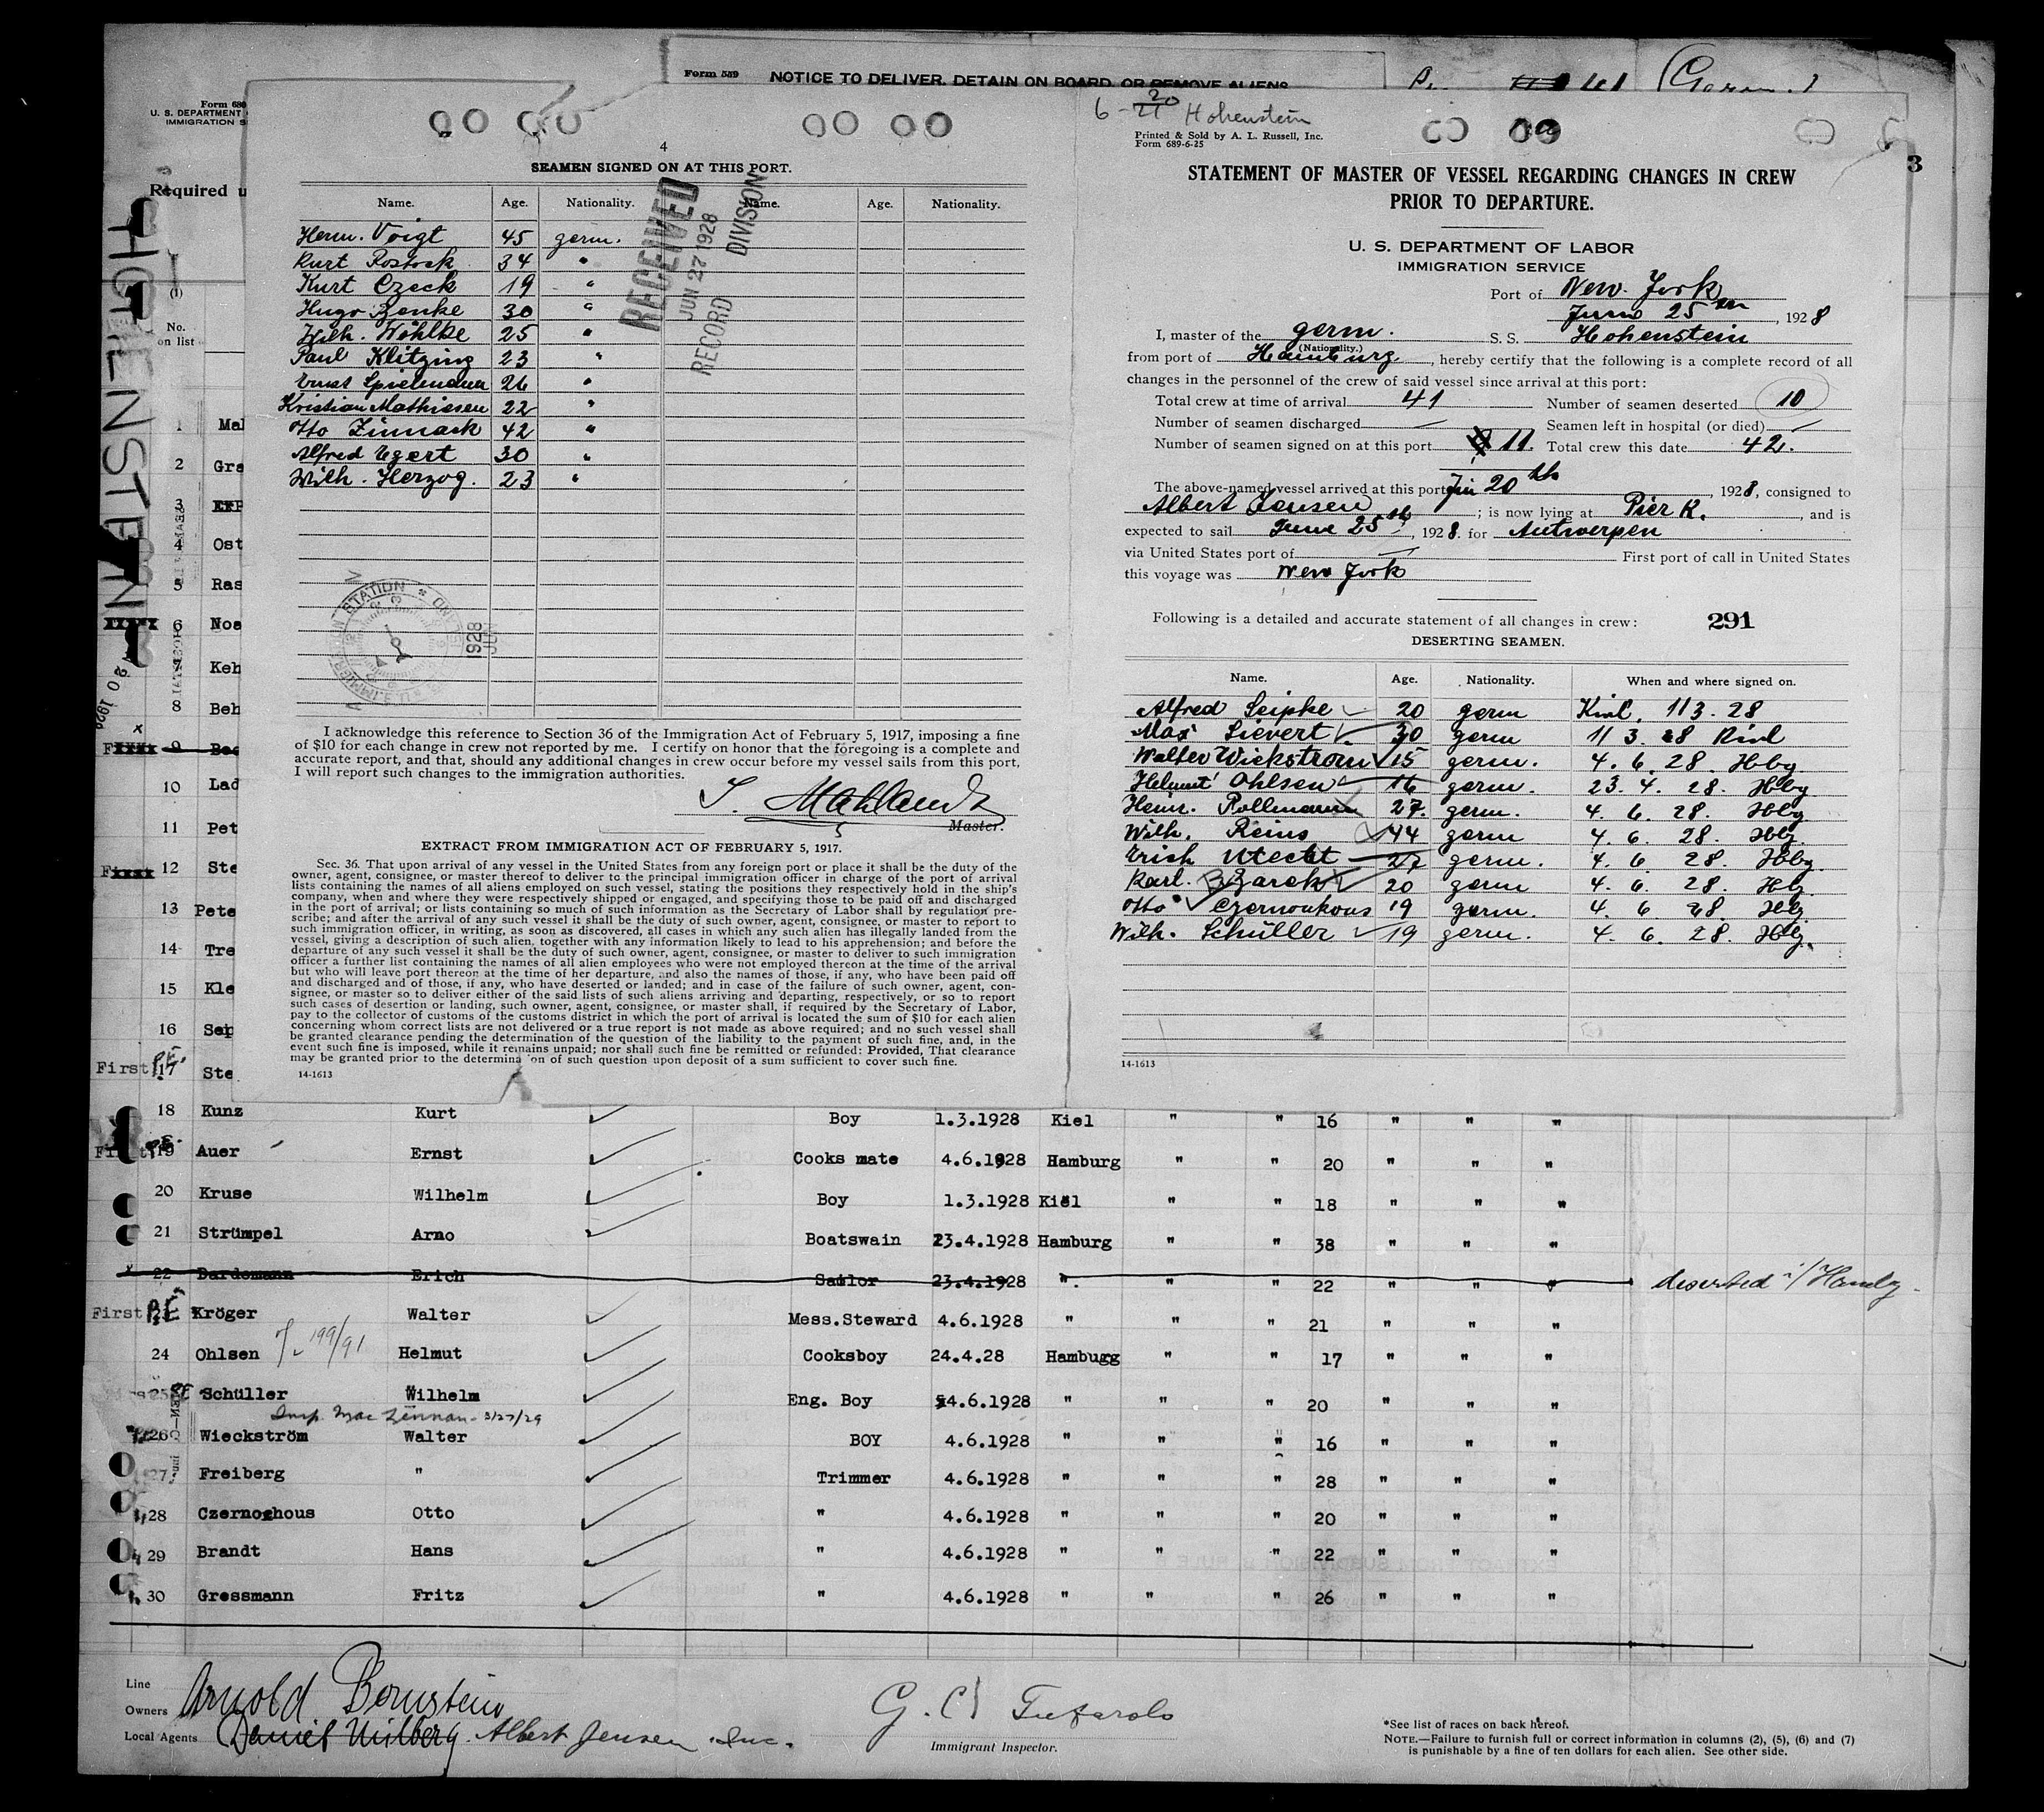 Form 559 NOTICE TO DELIVER, DETAIN ON BOARD, OR REMOVE ALIENS
Form 680
U. S. DEPARTMENT
IMMIGRATION S
Required u
HOHENSTEIN
(1)
No.
on list
1 Mal
2 Gra
3
4 Ost
5 Ras
6 Nos
Keh
8 Beh
9
10 Lad
11 Pet
12 Ste
13 Pete
14 Tre
15 Kle
16 Sep
First 17 Ste
4
SEAMEN SIGNED ON AT THIS PORT.
Name. Age. Nationality. Name. Age. Nationality.
Herm. Voigt 45 germ.
Kurt Rostock 34 "
Kurt Czeck 19 "
Hugo Benke 30 "
Wilh. Wöhlke 25 "
Paul Klitzing 23 "
Ernst Spielmann 26 "
Kristian Mathiesen 22 "
Otto Zinnack 42 "
Alfred Egert 30 "
Wilh. Herzog. 23 "
RECEIVED
JUN 27 1928
RECORD DIVISION
I acknowledge this reference to Section 36 of the Immigration Act of February 5, 1917, imposing a fine
of $10 for each change in crew not reported by me. I certify on honor that the foregoing is a complete and
accurate report, and that, should any additional changes in crew occur before my vessel sails from this port,
I will report such changes to the immigration authorities.
Master.
EXTRACT FROM IMMIGRATION ACT OF FEBRUARY 5, 1917.
Sec. 36. That upon arrival of any vessel in the United States from any foreign port or place it shall be the duty of the
owner, agent, consignee, or master thereof to deliver to the principal immigration officer in charge of the port of arrival
lists containing the names of all aliens employed on such vessel, stating the positions they respectively hold in the ship's
company, when and where they were respectively shipped or engaged, and specifying those to be paid off and discharged
in the port of arrival; or lists containing so much of such information as the Secretary of Labor shall by regulation pre-
scribe; and after the arrival of any such vessel it shall be the duty of such owner, agent, consignee, or master to report to
such immigration officer, in writing, as soon as discovered, all cases in which any such alien has illegally landed from the
vessel, giving a description of such alien, together with any information likely to lead to his apprehension; and before the
departure of any such vessel it shall be the duty of such owner, agent, consignee, or master to deliver to such immigration
officer a further list containing the names of all alien employees who were not employed thereon at the time of the arrival
but who will leave port thereon at the time of her departure, and also the names of those, if any, who have been paid off
and discharged and of those, if any, who have deserted or landed; and in case of the failure of such owner, agent, con-
signee, or master so to deliver either of the said lists of such aliens arriving and departing, respectively, or so to report
such cases of desertion or landing, such owner, agent, consignee, or master shall, if required by the Secretary of Labor,
pay to the collector of customs of the customs district in which the port of arrival is located the sum of $10 for each alien
concerning whom correct lists are not delivered or a true report is not made as above required; and no such vessel shall
be granted clearance pending the determination of the question of the liability to the payment of such fine, and, in the
event such fine is imposed, while it remains unpaid; nor shall such fine be remitted or refunded: Provided, That clearance
may be granted prior to the determination of such question upon deposit of a sum sufficient to cover such fine.
14-1613
6-20 Hohenstein
Printed & Sold by A. L. Russell, Inc.
Form 689-6-25
3
STATEMENT OF MASTER OF VESSEL REGARDING CHANGES IN CREW
PRIOR TO DEPARTURE.
U. S. DEPARTMENT OF LABOR
IMMIGRATION SERVICE
Port of New York
June 25th, 1928
I, master of the germ. S. S. Hohenstein
(Nationality.)
from port of Hamburg, hereby certify that the following is a complete record of all
changes in the personnel of the crew of said vessel since arrival at this port:
Total crew at time of arrival 41 Number of seamen deserted 10
Number of seamen discharged — Seamen left in hospital (or died) —
Number of seamen signed on at this port 11. Total crew this date 42.
The above-named vessel arrived at this port Jun 20th, 1928, consigned to
Albert Jensen; is now lying at Pier K., and is
expected to sail June 25th, 1928. for Antwerpen
via United States port of — First port of call in United States
this voyage was New York
Following is a detailed and accurate statement of all changes in crew: 291
DESERTING SEAMEN.
Name. Age. Nationality. When and where signed on.
Alfred Seipke 20 germ Kiel, 1 1 3. 28
Max Sievert 30 germ 11 3 28 Kiel
Walter Wickstrom 15 germ. 4. 6. 28. Hbg
Helmut Ohlsen 16 germ. 23. 4. 28. Hbg.
Heinr. Pollmann 27. germ. 4. 6. 28. Hbg.
Wilh. Reins 44 germ 4. 6. 28. Hbg.
Erich Utecht 27 germ. 4. 6. 28. Hbg
Karl. Barck 20 germ 4. 6. 28. Hbg.
Otto Czernoukous 19 germ. 4. 6 28. Hbg.
Wilh. Schüller 19 germ. 4. 6. 28. Hbg.
14-1613
18 Kunz Kurt Boy 1.3.1928 Kiel " " 16 " " "
19 Auer Ernst Cooks mate 4.6.1928 Hamburg " " 20 " " "
20 Kruse Wilhelm Boy 1.3.1928 Kiel " " 18 " " "
21 Strümpel Arno Boatswain 23.4.1928 Hamburg " " 38 " " "
22 Dardemann Erich Sailor 23.4.1928 " " " 22 " " " deserted
First Kröger Walter Mess.Steward 4.6.1928 " " " 21 " " "
199/91
24 Ohlsen Helmut Cooksboy 24.4.28 Hambugg " " 17 " " "
25 Schüller Wilhelm Eng. Boy 4.6.1928 " " " 20 " " "
26 Wieckström Walter BOY 4.6.1928 " " " 16 " " "
27 Freiberg " Trimmer 4.6.1928 " " " 28 " " "
28 Czernochous Otto " 4.6.1928 " " " 20 " " "
29 Brandt Hans " 4.6.1928 " " " 22 " " "
30 Gressmann Fritz " 4.6.1928 " " " 26 " " "
Line
Owners Arnold Bernstein
Local Agents Daniel Milberg. Albert Jensen Inc.
Immigrant Inspector.
*See list of races on back hereof.
NOTE.—Failure to furnish full or correct information in columns (2), (5), (6) and (7)
is punishable by a fine of ten dollars for each alien. See other side.